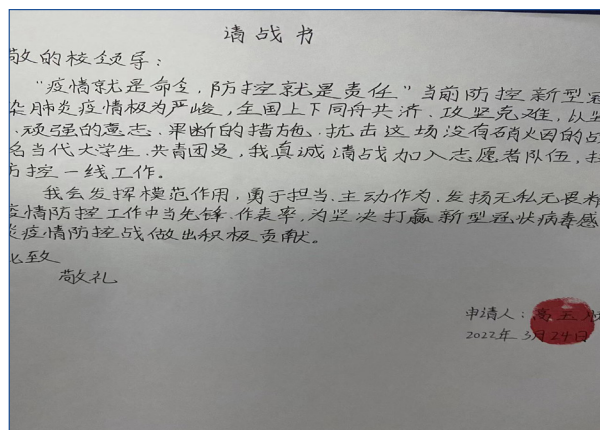 请战书
敬的校领导：
"疫情就是命令，防控就是责任"当前防控新型冠
染肺炎疫情极为严峻，全国上下同舟共济、攻坚克难，以坚
、顽强的意志、果断的措施、抗击这场没有硝烟的战
名当代大学生、共青团员，我真诚请战加入志愿者队伍，投
防控一线工作。
我会发挥模范作用，勇于担当、主动作为、发扬无私无畏精
疫情防控工作中当先锋、作表率，为坚决打赢新型冠状病毒感
炎疫情防控战做出积极贡献。
此致
敬礼
申请人：
2022年3月24日